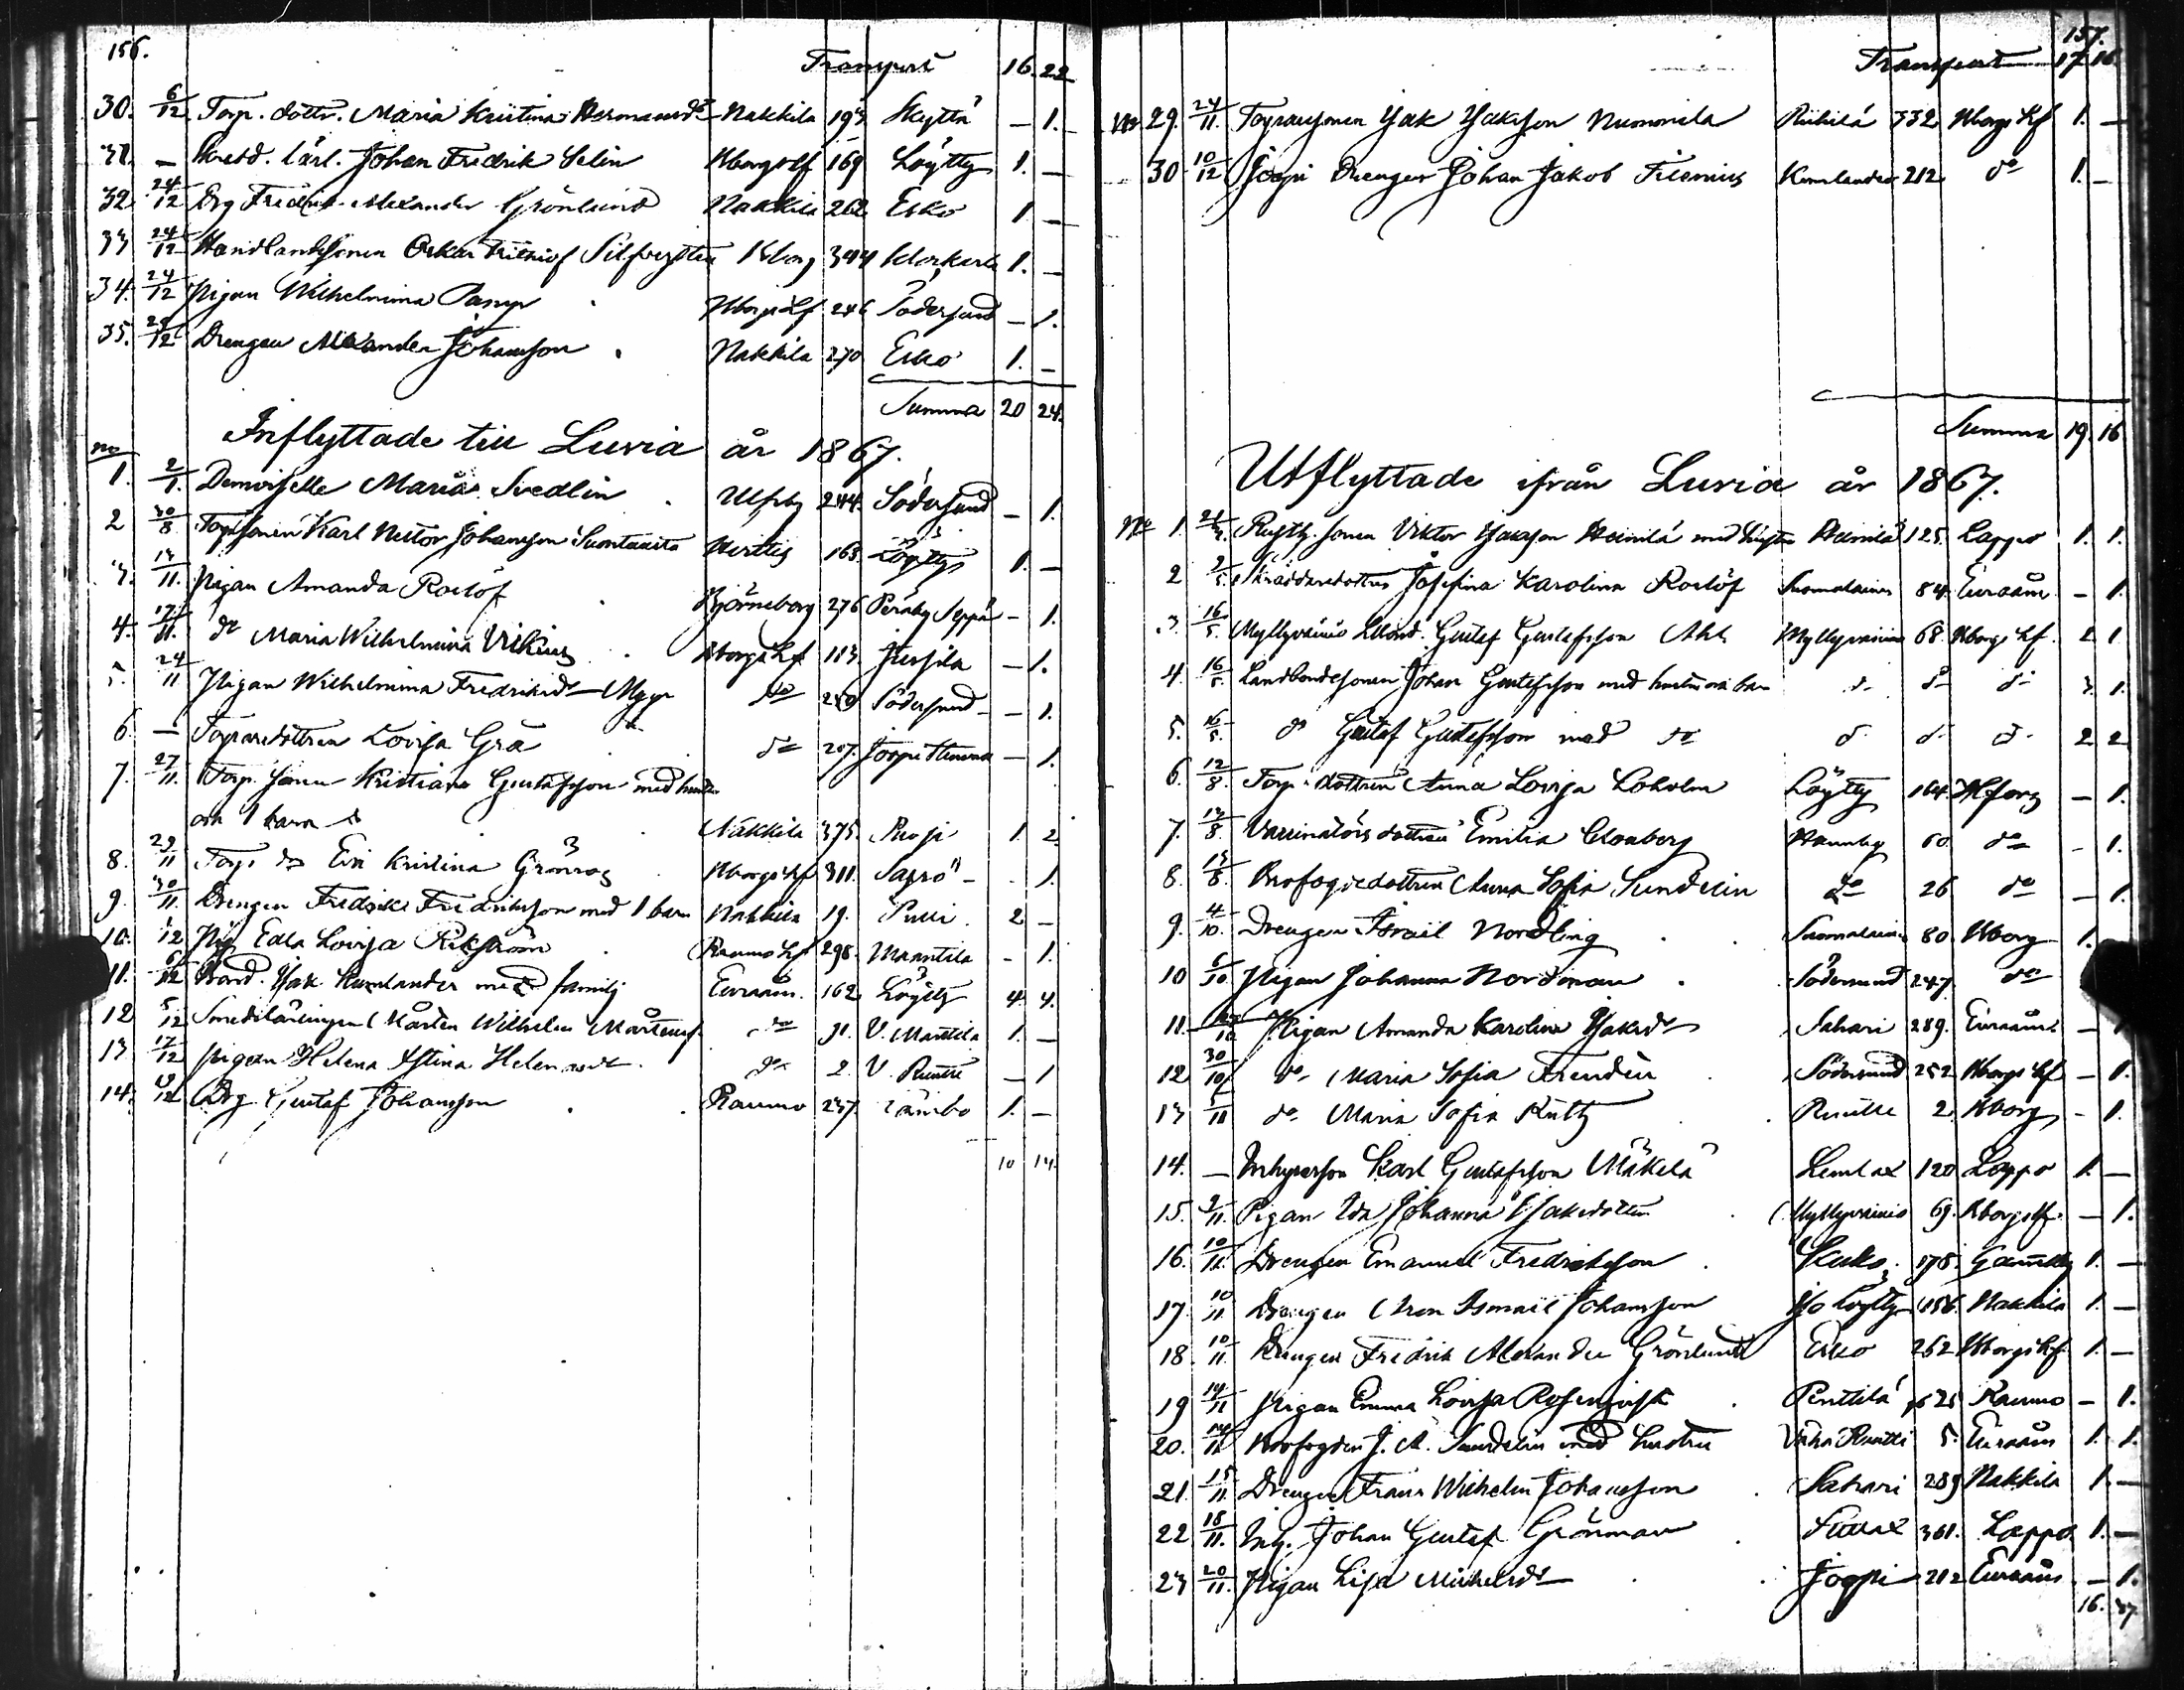 156.
Transport 16. 22
30. 6/12 Torp. dottr. Maria Kristina Hermansdr Nakkila 193 Skyttä — 1.
31. — Skredd. lärl. Johan Fredrik Selin Bborgs Lf 169 Löytty 1. —
32 24/12 Drg Fredrik Alexander Grönlund Nakkila 262 Esko 1 —
33 24/12 Handlandssonen Oskar Frithiof Silfversten Bborg 344 1. —
34. 24/12 Pigan Wilhelmina Bborgs Lf 246 Södersund — 1.
35. 29/12 Drengen Alexander Johansson Nakkila 270 Esko 1. —
Summa 20 24.
Inflyttade till Luvia år 1867.
no
1. 2/1. Demoiselle Maria Svedlin Ulfsby 244. Södersund — 1.
2 30/8 Torpssonen Karl Nestor Johansson Suontausta 163. Löytty 1. —
3. 13/11. Pigan Amanda Roslöf Björneborg 276 Peräby Seppä — 1.
4. 17/11. do Maria Wilhelmina Bborgs Lf 113. Jussila — 1.
5. 24/11 Pigan Wilhelmina Fredriksdr Mygr do 250 Södersund — 1.
6. — Torparedottren Lovisa Grå do 207. Joopi — 1.
7. 27/11. Torp. sonen Kristian Gustafsson med hustru
och 1 barn Nakkila 375. 1. 2.
8. 29/11 Torp. do Eva Kristina Grönroos Bborgs Lf 311. — 1.
9. 30/11. Drengen Fredrik Fredriksson med 1 barn Nakkila 19. 2 —
10. /12 Pig. Edla Lovisa Raumo Lf 298. Maantila — 1.
11. 5/12 Bond. Isak Kumlander med familj Euraåm. 162 Löytty 4. 4.
12 5/12 Smedslärlingen Mårten Wilhelm Mårtenss. do 31. V. Mantila 1. —
13 17/12 pigan Helena Stina do 2. V. Ruutti — 1
14. 19/12 Drg Gustaf Johansson Raumo 237. 1. —
10 14.
157.
Transport 17 16.
No 29. 24/11. Torparsonen Isak Isaksson Nummila Riihilä 332 Bborgs Lf 1. —
30 10/12 Joopi Drengen Johan Jakob Kumlander 212 do 1. —
Summa 19. 16
Utflyttade ifrån Luvia år 1867.
No 1. Rusth. sonen Viktor Isaksson Heinilä med hustru Heinilä 125. Lappo 1. 1.
2 2/5. Skräddaredottren Josefina Karolina Roslöf Suomalainen 84. Euraåm — 1.
3. 16/5. Myllyväinio Gustaf Gustafsson Myllyväinio 68. Bborgs Lf. 2 1
4. 16/5. Landbondesonen Johan Gustafsson med hustru och barn do do do 3 1.
5. 16/5. do Gustaf Gustafsson med do do do do 2 2
6. 12/8. Torp. dottren Anna Lovisa Loholm Löytty 164. Hfors — 1.
7. 13/8. Vaccinatörs dottren Emilia Hannby 60 do — 1.
8. 13/8. Profogdedottren Anna Sofia Sundelin do 26 do — 1.
9. 4/10. Drengen Israel Nordling Suomalainen 80. Bborg 1.
10 6/10. Pigan Johanna Nordman Södersund 247. do
11. Pigan Amanda Karolina Isaksdr Sahari 289. Euraåm —
12 30/10 do Maria Sofia Frenden Södersund 252 Bborgs Lf — 1.
13 /11 do Maria Sofia Ruutti 2. Bborg — 1.
14. — Inhysesson Karl Gustafsson Mäkelä Lemlax 120 Lappo 1. —
15. 9/11. Pigan Ida Johanna Isaksdotter Myllyväinio 69. Bborgs Lf. — 1.
16. 10/11. Drengen Emanuel Fredriksson 178. Gamelby 1. —
17. 10/11. Drengen Aron Ismael Johansson Iso Löytty 156. Nakkila 1. —
18. 10/11. Drengen Fredrik Alexander Grönlund Esko 262 Bborgs Lf 1. —
19 14/11 Pigan Emma Lovisa Rosenqvist Penttilä Raumo — 1.
20. 14/11 Profogden J. A. Sundelin med hustru Vähä Ruutti 5. Euraåm 1. 1.
21. 15/11. Drengen Frans Wilhelm Johansson Sahari 289 Nakkila 1. —
22 18/11. Inh. Johan Gustaf Grönman 361. Lappo 1. —
23 20/11. Pigan Lisa Joopi 212 Euraåm — 1.
16. 37.